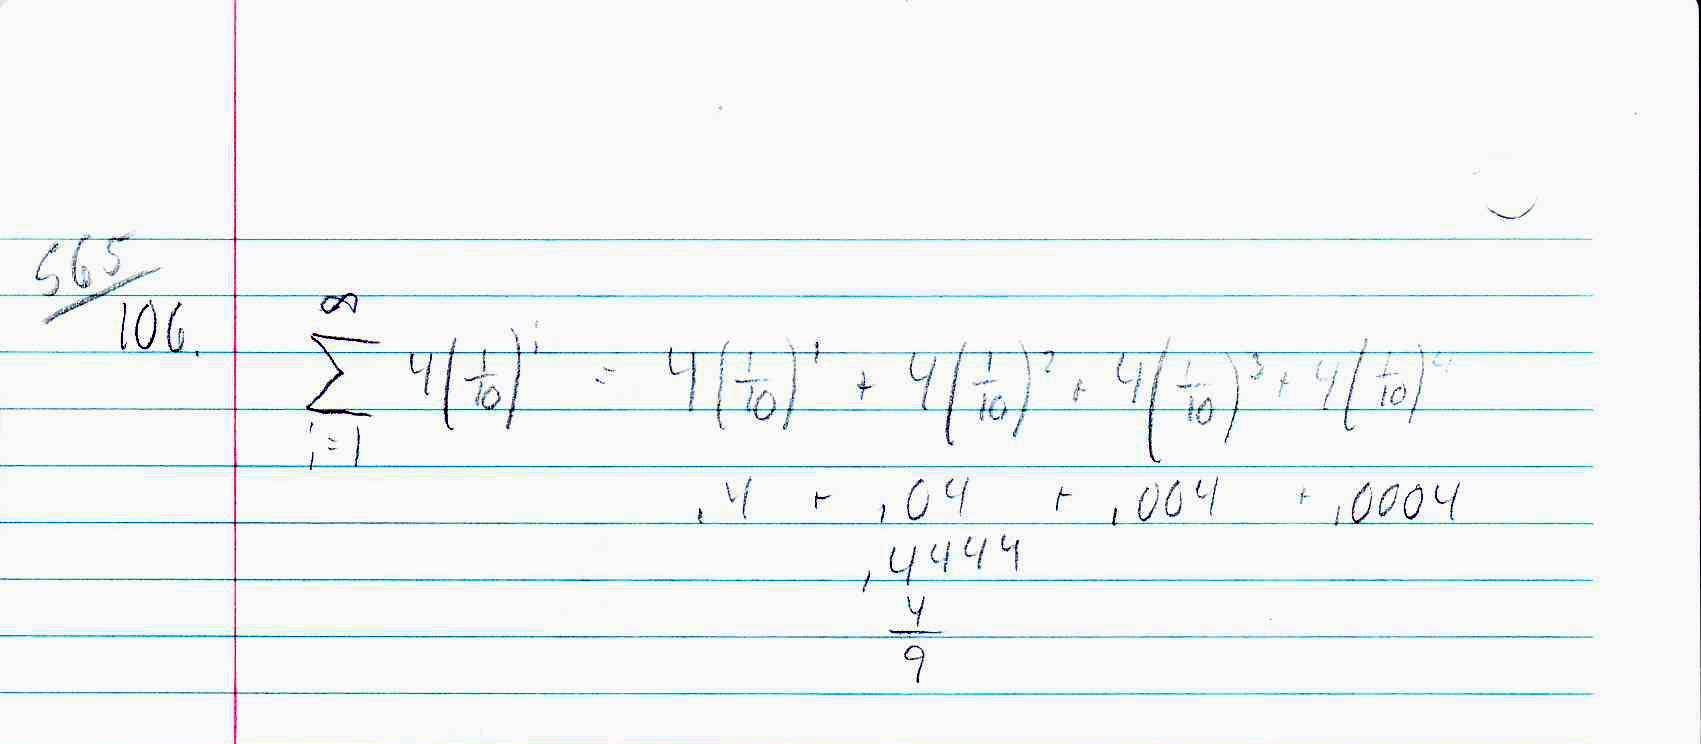 565
106.
∞
∑ 4(1/10)^i = 4(1/10)^1 + 4(1/10)^2 + 4(1/10)^3 + 4(1/10)^4
i=1
.4 + .04 + .004 + .0004
.4444
4/9